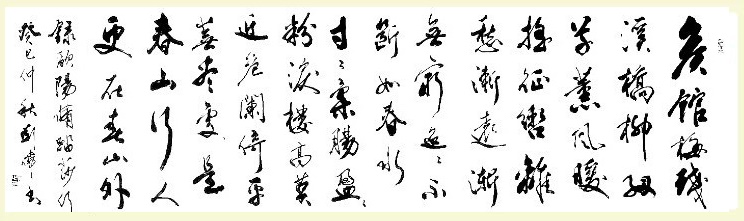 候館梅殘
溪橋柳細
草薰風暖
搖征轡離
愁漸遠漸
無窮迢〻不
斷如春水
寸〻柔腸盈〻
粉淚樓高莫
近危闌倚平
蕪尽處是
春山行人
更在春山外
錄歐陽脩踏莎行
癸巳仲秋劉書